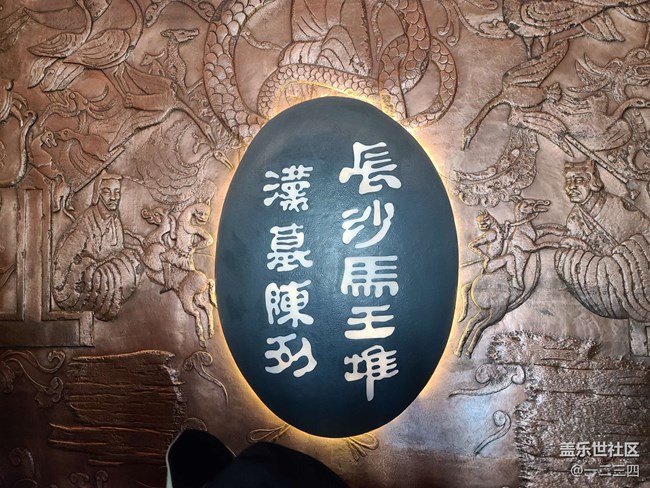 長沙馬王堆
漢墓陳列
盖乐世社区
@一二三四